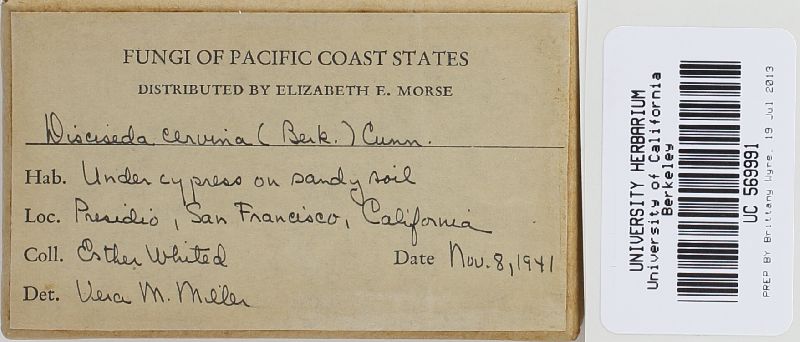 FUNGI OF PACIFIC COAST STATES
DISTRIBUTED BY ELIZABETH E. MORSE
Disciseda cervina (Berk.) Cunn.
Hab. Under cypress on sandy soil
Loc. Presidio, San Francisco, California
Coll. Esther Whited Date Nov. 8, 1941
Det. Vera M. Miller
UNIVERSITY HERBARIUM
University of California
Berkeley
UC 569991
PREP BY Brittany Wyre, 19 Jul 2013